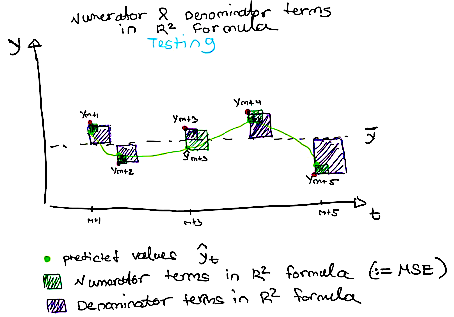 Numerator & Denominator terms
in R² formula
Testing
y
ym+1
ym+3
ym+4
ȳ
ym+2
ŷm+3
ym+5
m+1
m+3
m+5
t
predicted values ŷt
Numerator terms in R² formula (:= MSE)
Denominator terms in R² formula